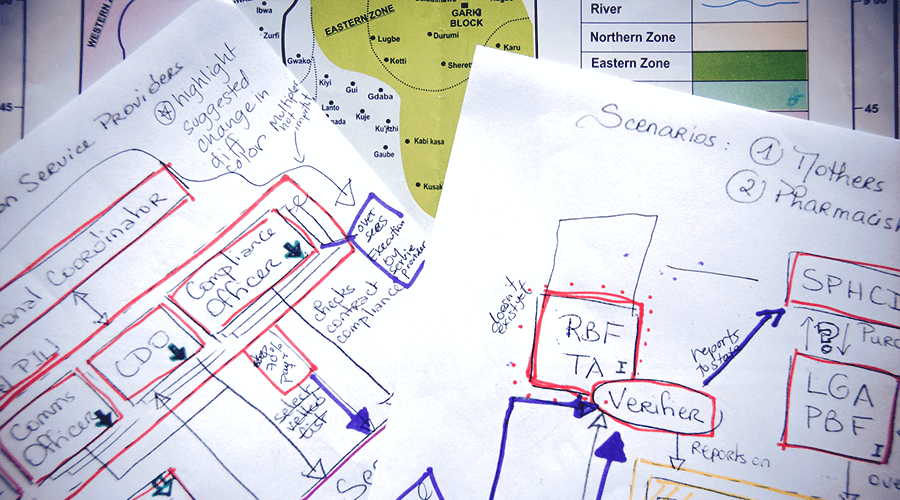 WESTERN
Ibwa
Zurfi
Gwako
EASTERN ZONE
GARKI
BLOCK
Lugbe
Durumi
Karu
Ketti
Kiyi
Gui
Gdaba
Lanto
Kuje
Ku'jtzhi
Gaube
Kabi kasa
Kusak
River
Northern Zone
Eastern Zone
45
45
on Service Providers
highlight
suggested
change in
diff
color
Multiple
not
onal Coordinator
Compliance
Officer
CDO
Comms
Officer
over
sees
Execution
by
service
provider
checks
contract
compliance
70%
pay
select
vetted
list
Scenarios: ① Mothers
② Pharmacist
doesn't
exist yet
RBF
TA I
Verifier
reports
to state
Reports on
SPHCD
?
Purc
LGA
PBF
I
ove